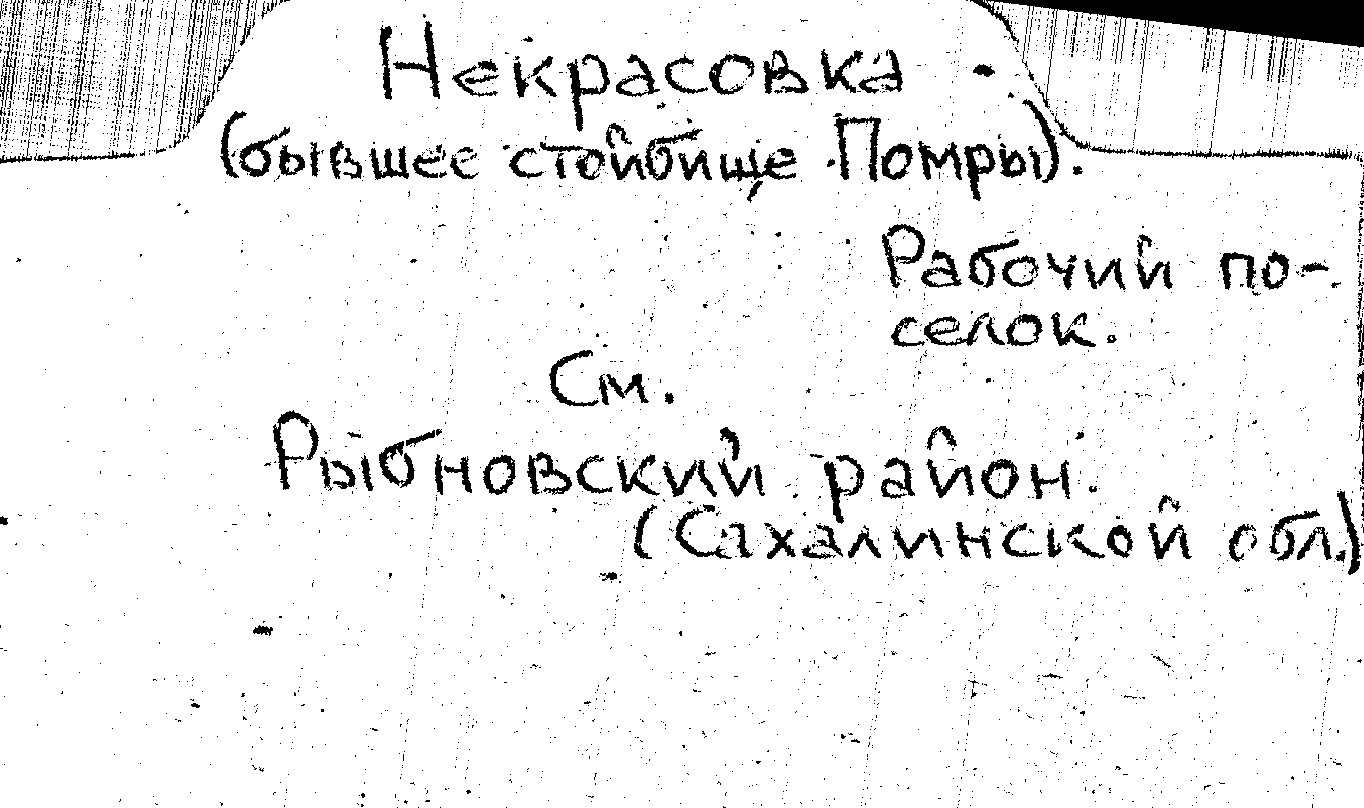 Некрасовка -
(бывшее стойбище Помры).
Рабочий по-
селок.
См.
Рыбновский район.
(Сахалинской обл.)